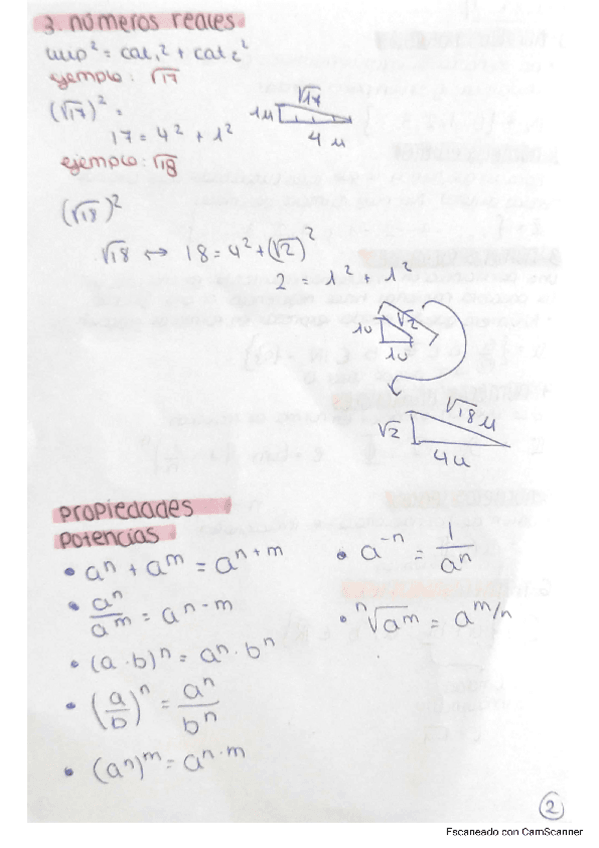 3. números reales
hip² = cat₁² + cat₂²
ejemplo: √17
(√17)² =
17 = 4² + 1²
√17
1u
4 u
ejemplo: √18
(√18)²
√18 ↔ 18 = 4² + (√2)²
2 = 1² + 1²
1u √2
1u
√18 u
√2
4u
propiedades
potencias
• aⁿ + aᵐ = aⁿ⁺ᵐ
• aⁿ/aᵐ = aⁿ⁻ᵐ
• (a · b)ⁿ = aⁿ · bⁿ
• (a/b)ⁿ = aⁿ/bⁿ
• (aⁿ)ᵐ = aⁿ·ᵐ
• a⁻ⁿ = 1/aⁿ
• ⁿ√aᵐ = a^m/n
2
Escaneado con CamScanner